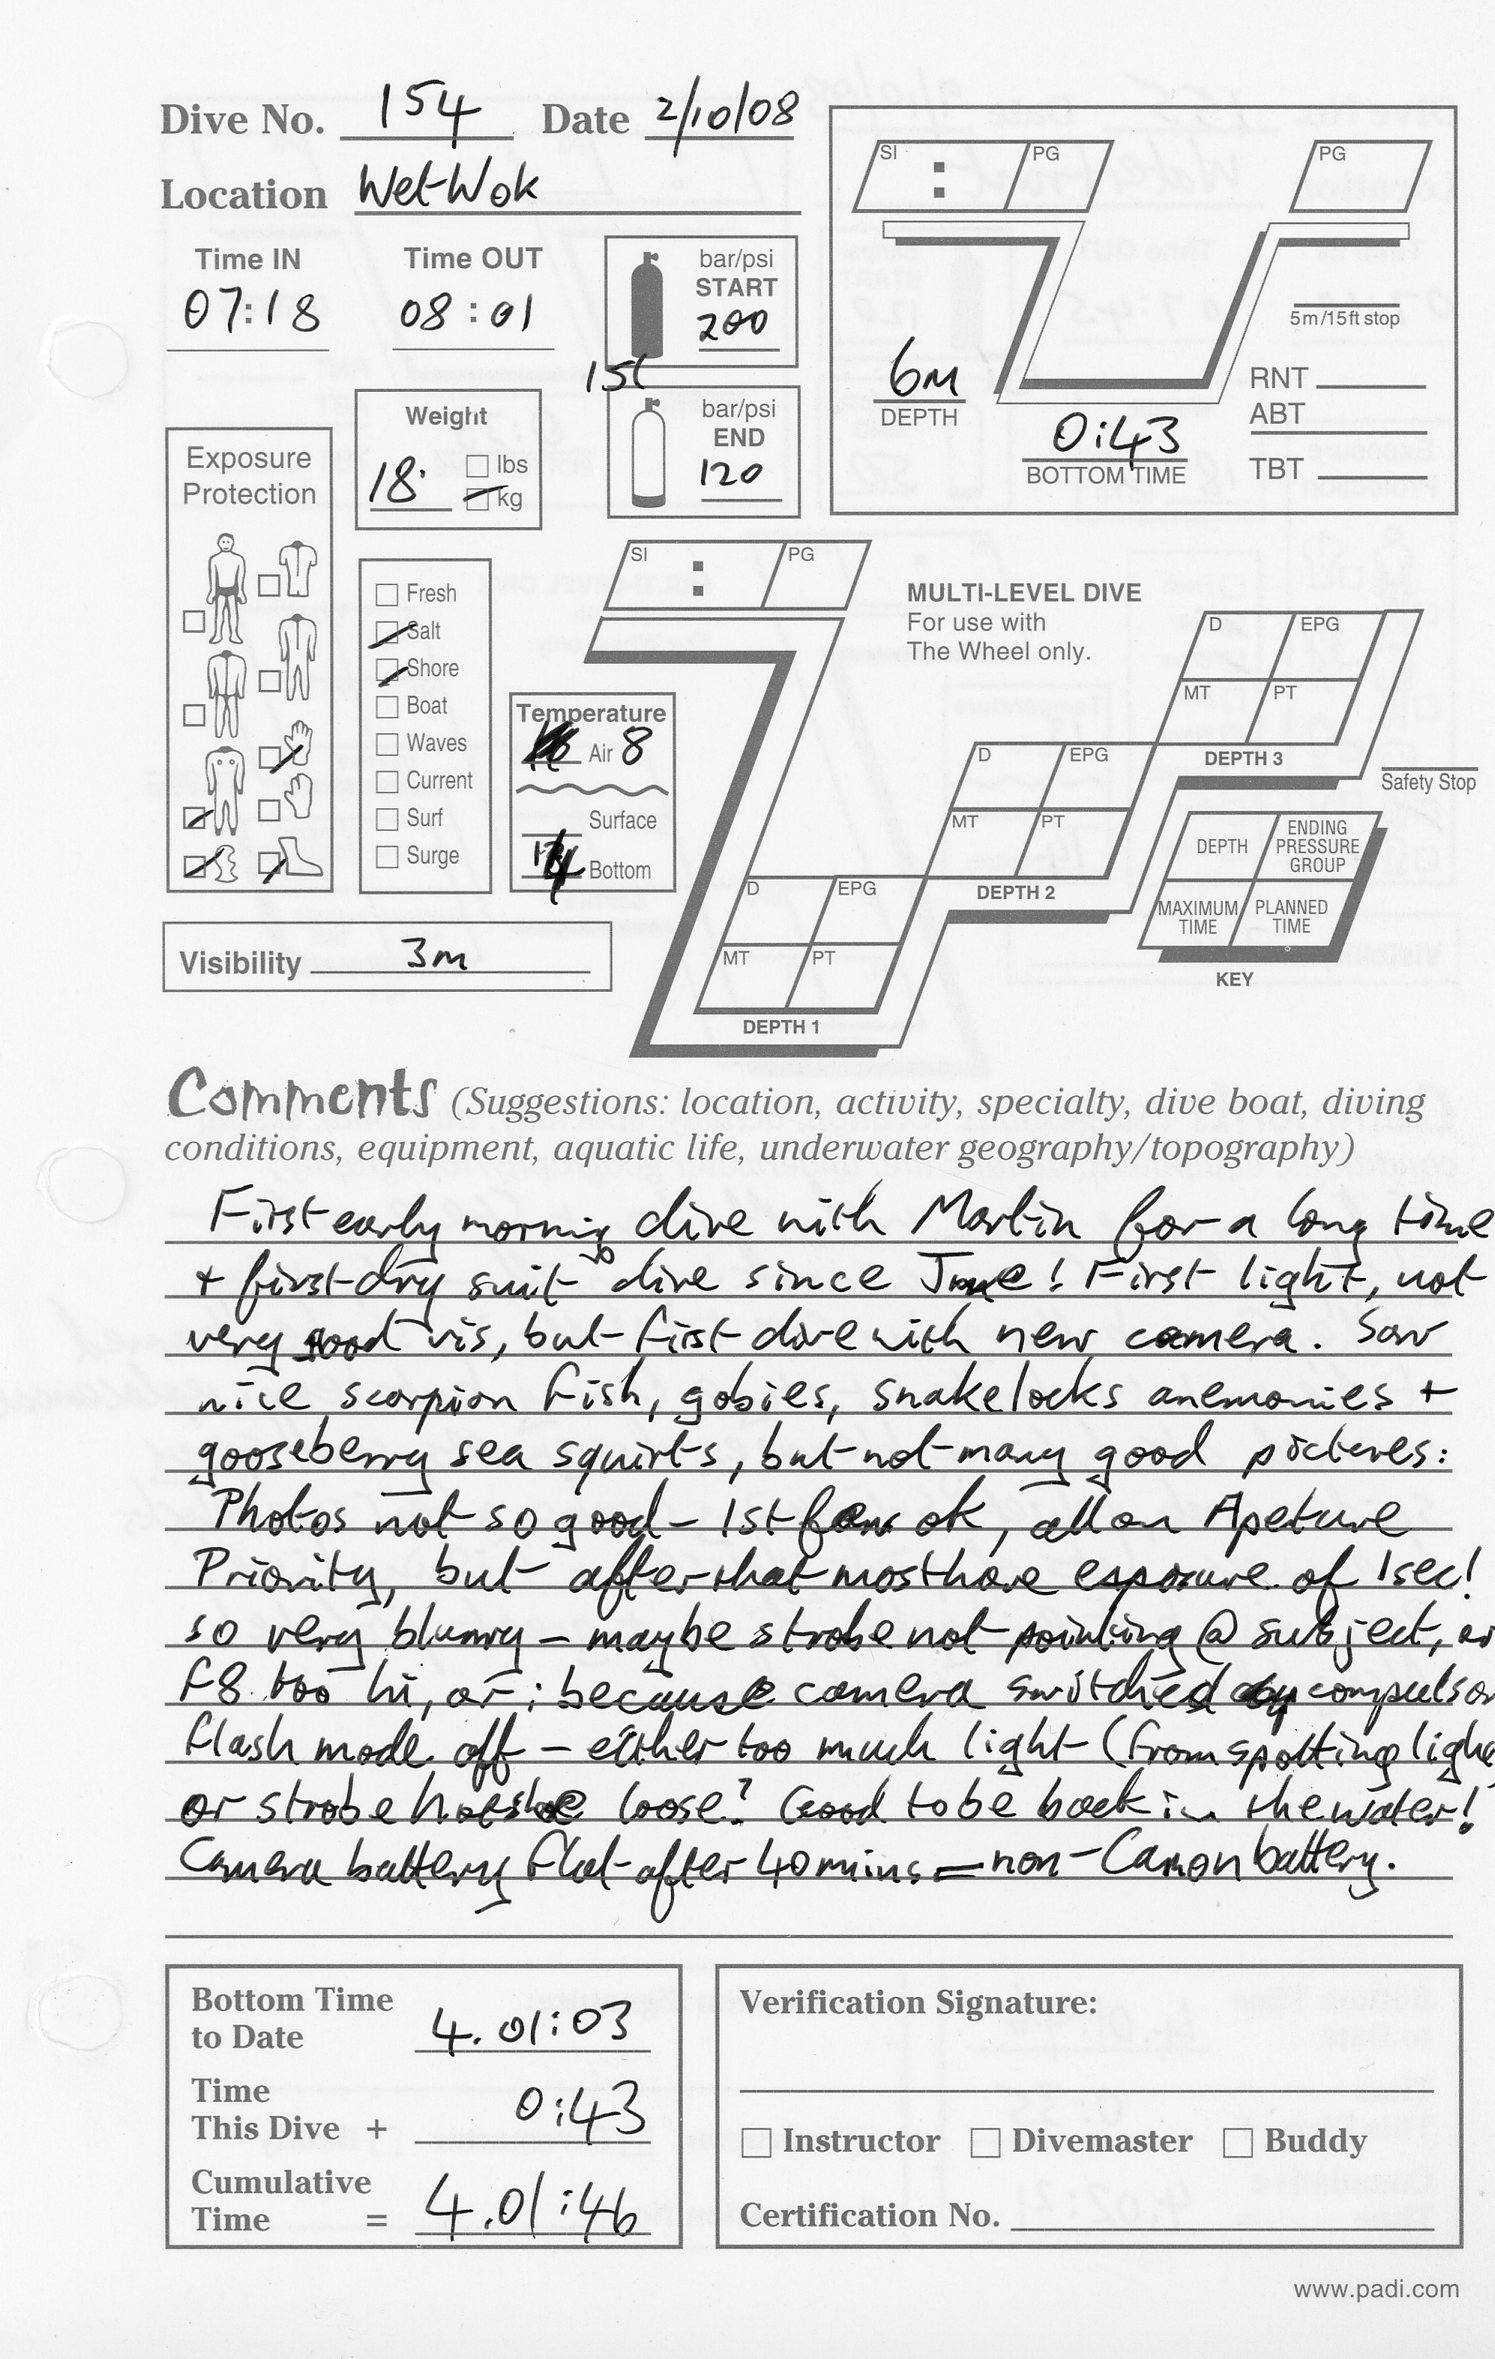 Dive No. 154 Date 2/10/08
Location Wet Wok
Time IN Time OUT
07:18 08:01
bar/psi
START
200
15l
bar/psi
END
120
Weight
18 lbs
kg
Exposure
Protection
Fresh
Salt
Shore
Boat
Waves
Current
Surf
Surge
Temperature
Air 8
Surface
Bottom
Visibility 3m
SI : PG
PG
5m/15ft stop
6m
DEPTH
0:43
BOTTOM TIME
RNT
ABT
TBT
SI : PG
MULTI-LEVEL DIVE
For use with
The Wheel only.
D EPG
MT PT
DEPTH 3
Safety Stop
D EPG
MT PT
DEPTH 2
D EPG
MT PT
DEPTH 1
DEPTH ENDING PRESSURE GROUP
MAXIMUM TIME PLANNED TIME
KEY
Comments (Suggestions: location, activity, specialty, dive boat, diving
conditions, equipment, aquatic life, underwater geography/topography)
First early morning dive with Martin for a long time
+ first dry suit dive since June! First light, not
very good vis, but first dive with new camera. Saw
nice scorpion fish, gobies, snakelocks anemonies +
gooseberry sea squirts, but not many good pictures:
Photos not so good - 1st few ok, all on Apeture
Priority, but after that most have exposure of 1sec!
so very blurry - maybe strobe not pointing @ subject, or
F8 too hi, or : because camera switched compulsor
flash mode off - either too much light (from spotting light
or strobe hotshoe loose? Good to be back in the water!
Camera battery flat after 40 mins = non-Canon battery.
Bottom Time
to Date 4.01:03
Time
This Dive + 0:43
Cumulative
Time = 4.01:46
Verification Signature:
Instructor Divemaster Buddy
Certification No.
www.padi.com